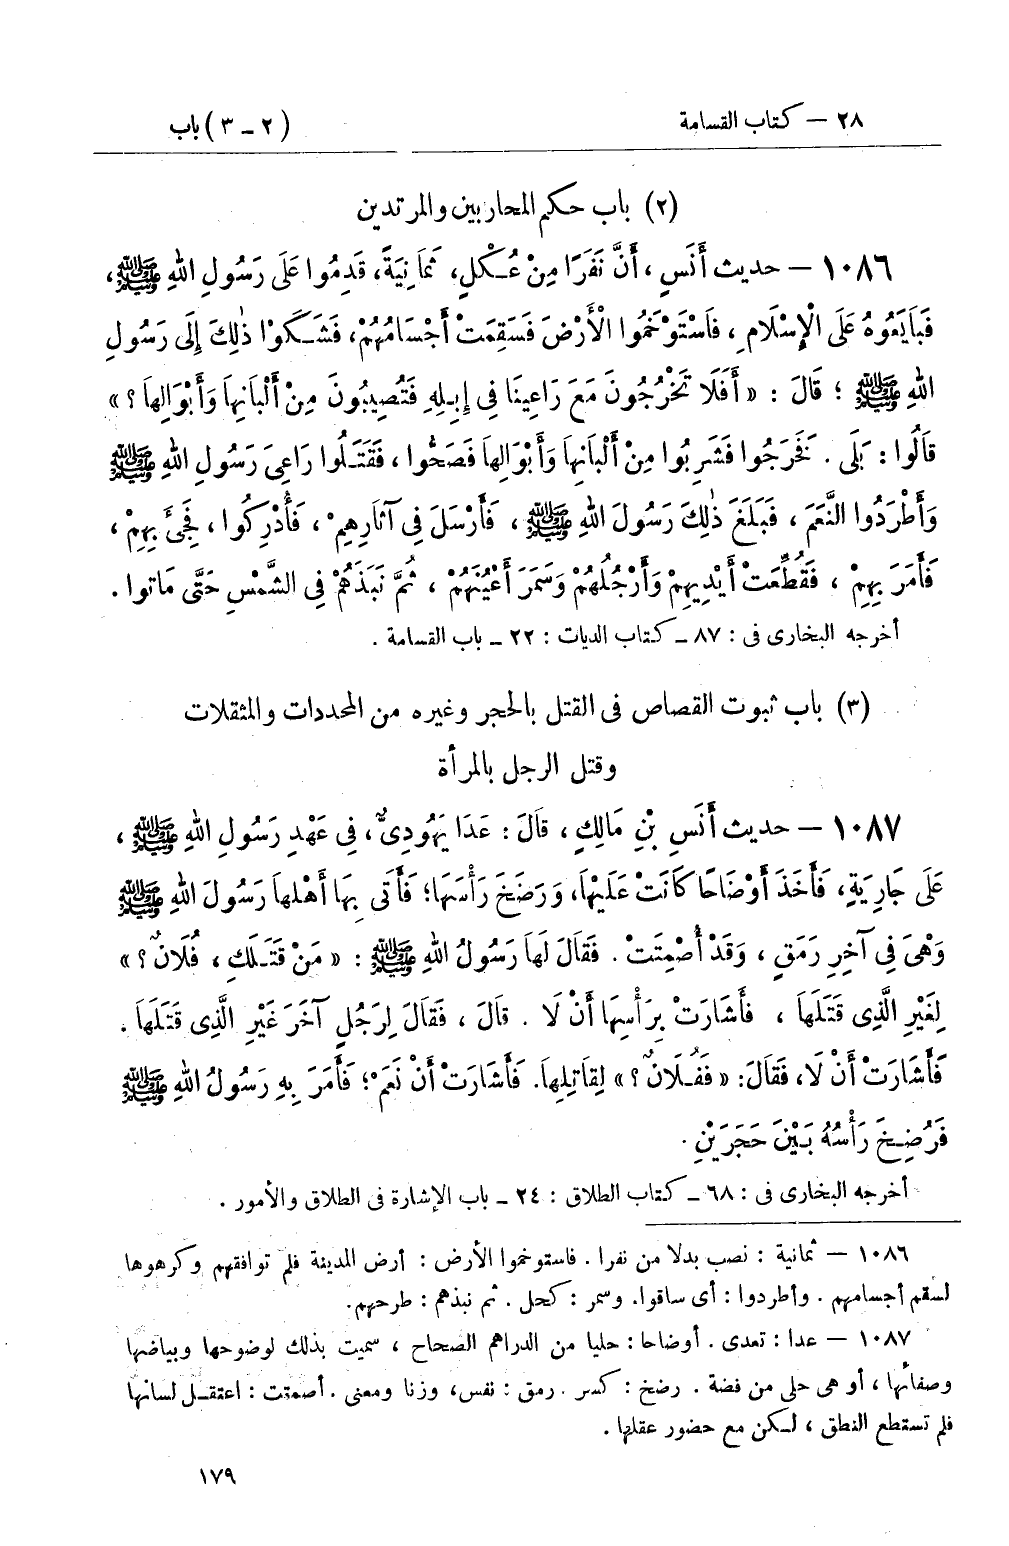 ٢٨ — كتاب القسامة (٢ ـ ٣) باب
(٢) باب حكم المحاربين والمرتدين
١٠٨٦ — حديث أَنَسٍ، أَنَّ نَفَرًا مِنْ عُكْلٍ، ثَمَانِيَةً، قَدِمُوا عَلَى رَسُولِ اللهِ ﷺ،
فَبَايَعُوهُ عَلَى الْإِسْلَامِ، فَاسْتَوْخَمُوا الْأَرْضَ فَسَقِمَتْ أَجْسَامُهُمْ، فَشَكَوْا ذٰلِكَ إِلَى رَسُولِ
اللهِ ﷺ؛ قَالَ: «أَفَلَا تَخْرُجُونَ مَعَ رَاعِينَا فِى إِبِلِهِ فَتُصِيبُونَ مِنْ أَلْبَانِهَا وَأَبْوَالِهَا؟»
قَالُوا: بَلَى. فَخَرَجُوا فَشَرِبُوا مِنْ أَلْبَانِهَا وَأَبْوَالِهَا فَصَحُّوا، فَقَتَلُوا رَاعِىَ رَسُولِ اللهِ ﷺ
وَأَطْرَدُوا النَّعَمَ، فَبَلَغَ ذٰلِكَ رَسُولَ اللهِ ﷺ، فَأَرْسَلَ فِى آثَارِهِمْ، فَأُدْرِكُوا، فَجِىءَ بِهِمْ،
فَأَمَرَ بِهِمْ، فَقُطِّعَتْ أَيْدِيهِمْ وَأَرْجُلُهُمْ وَسَمَرَ أَعْيُنَهُمْ، ثُمَّ نَبَذَهُمْ فِى الشَّمْسِ حَتَّى مَاتوا.
أخرجه البخارى فى: ٨٧ ـ كتاب الديات: ٢٢ ـ باب القسامة.
(٣) باب ثبوت القصاص فى القتل بالحجر وغيره من المحددات والمثقلات
وقتل الرجل بالمرأة
١٠٨٧ — حديث أَنَسِ بْنِ مَالِكٍ، قَالَ: عَدَا يَهُودِىٌّ، فِى عَهْدِ رَسُولِ اللهِ ﷺ،
عَلَى جَارِيَةٍ، فَأَخَذَ أَوْضَاحًا كَانَتْ عَلَيْهَا، وَرَضَخَ رَأْسَهَا؛ فَأَتَى بِهَا أَهْلُهَا رَسُولَ اللهِ ﷺ
وَهْىَ فِى آخِرِ رَمَقٍ، وَقَدْ أُصْمِتَتْ. فَقَالَ لَهَا رَسُولُ اللهِ ﷺ: «مَنْ قَتَلَكِ، فُلَانٌ؟»
لِغَيْرِ الَّذِى قَتَلَهَا، فَأَشَارَتْ بِرَأْسِهَا أَنْ لَا. قَالَ، فَقَالَ لِرَجُلٍ آخَرَ غَيْرِ الَّذِى قَتَلَهَا.
فَأَشَارَتْ أَنْ لَا، فَقَالَ: «فَفُلَانٌ؟» لِقَاتِلِهَا. فَأَشَارَتْ أَنْ نَعَمْ؛ فَأَمَرَ بِهِ رَسُولُ اللهِ ﷺ
فَرُضِخَ رَأْسُهُ بَيْنَ حَجَرَيْنِ.
أخرجه البخارى فى: ٦٨ ـ كتاب الطلاق: ٢٤ ـ باب الإشارة فى الطلاق والأمور.
١٠٨٦ — ثمانية: نصب بدلا من نفرا. فاستوخموا الأرض: أرض المدينة فلم توافقهم وكرهوها
لسقم أجسامهم. وأطردوا: أى ساقوا. وسمر: كحل. ثم نبذهم: طرحهم.
١٠٨٧ — عدا: تعدى. أوضاحا: حليا من الدراهم الصحاح، سميت بذلك لوضوحها وبياضها
وصفائها، أو هى حلى من فضة. رضخ: كسر. رمق: نفس، وزنا ومعنى. أصمتت: اعتقل لسانها
فلم تستطع النطق، لكن مع حضور عقلها.
١٧٩